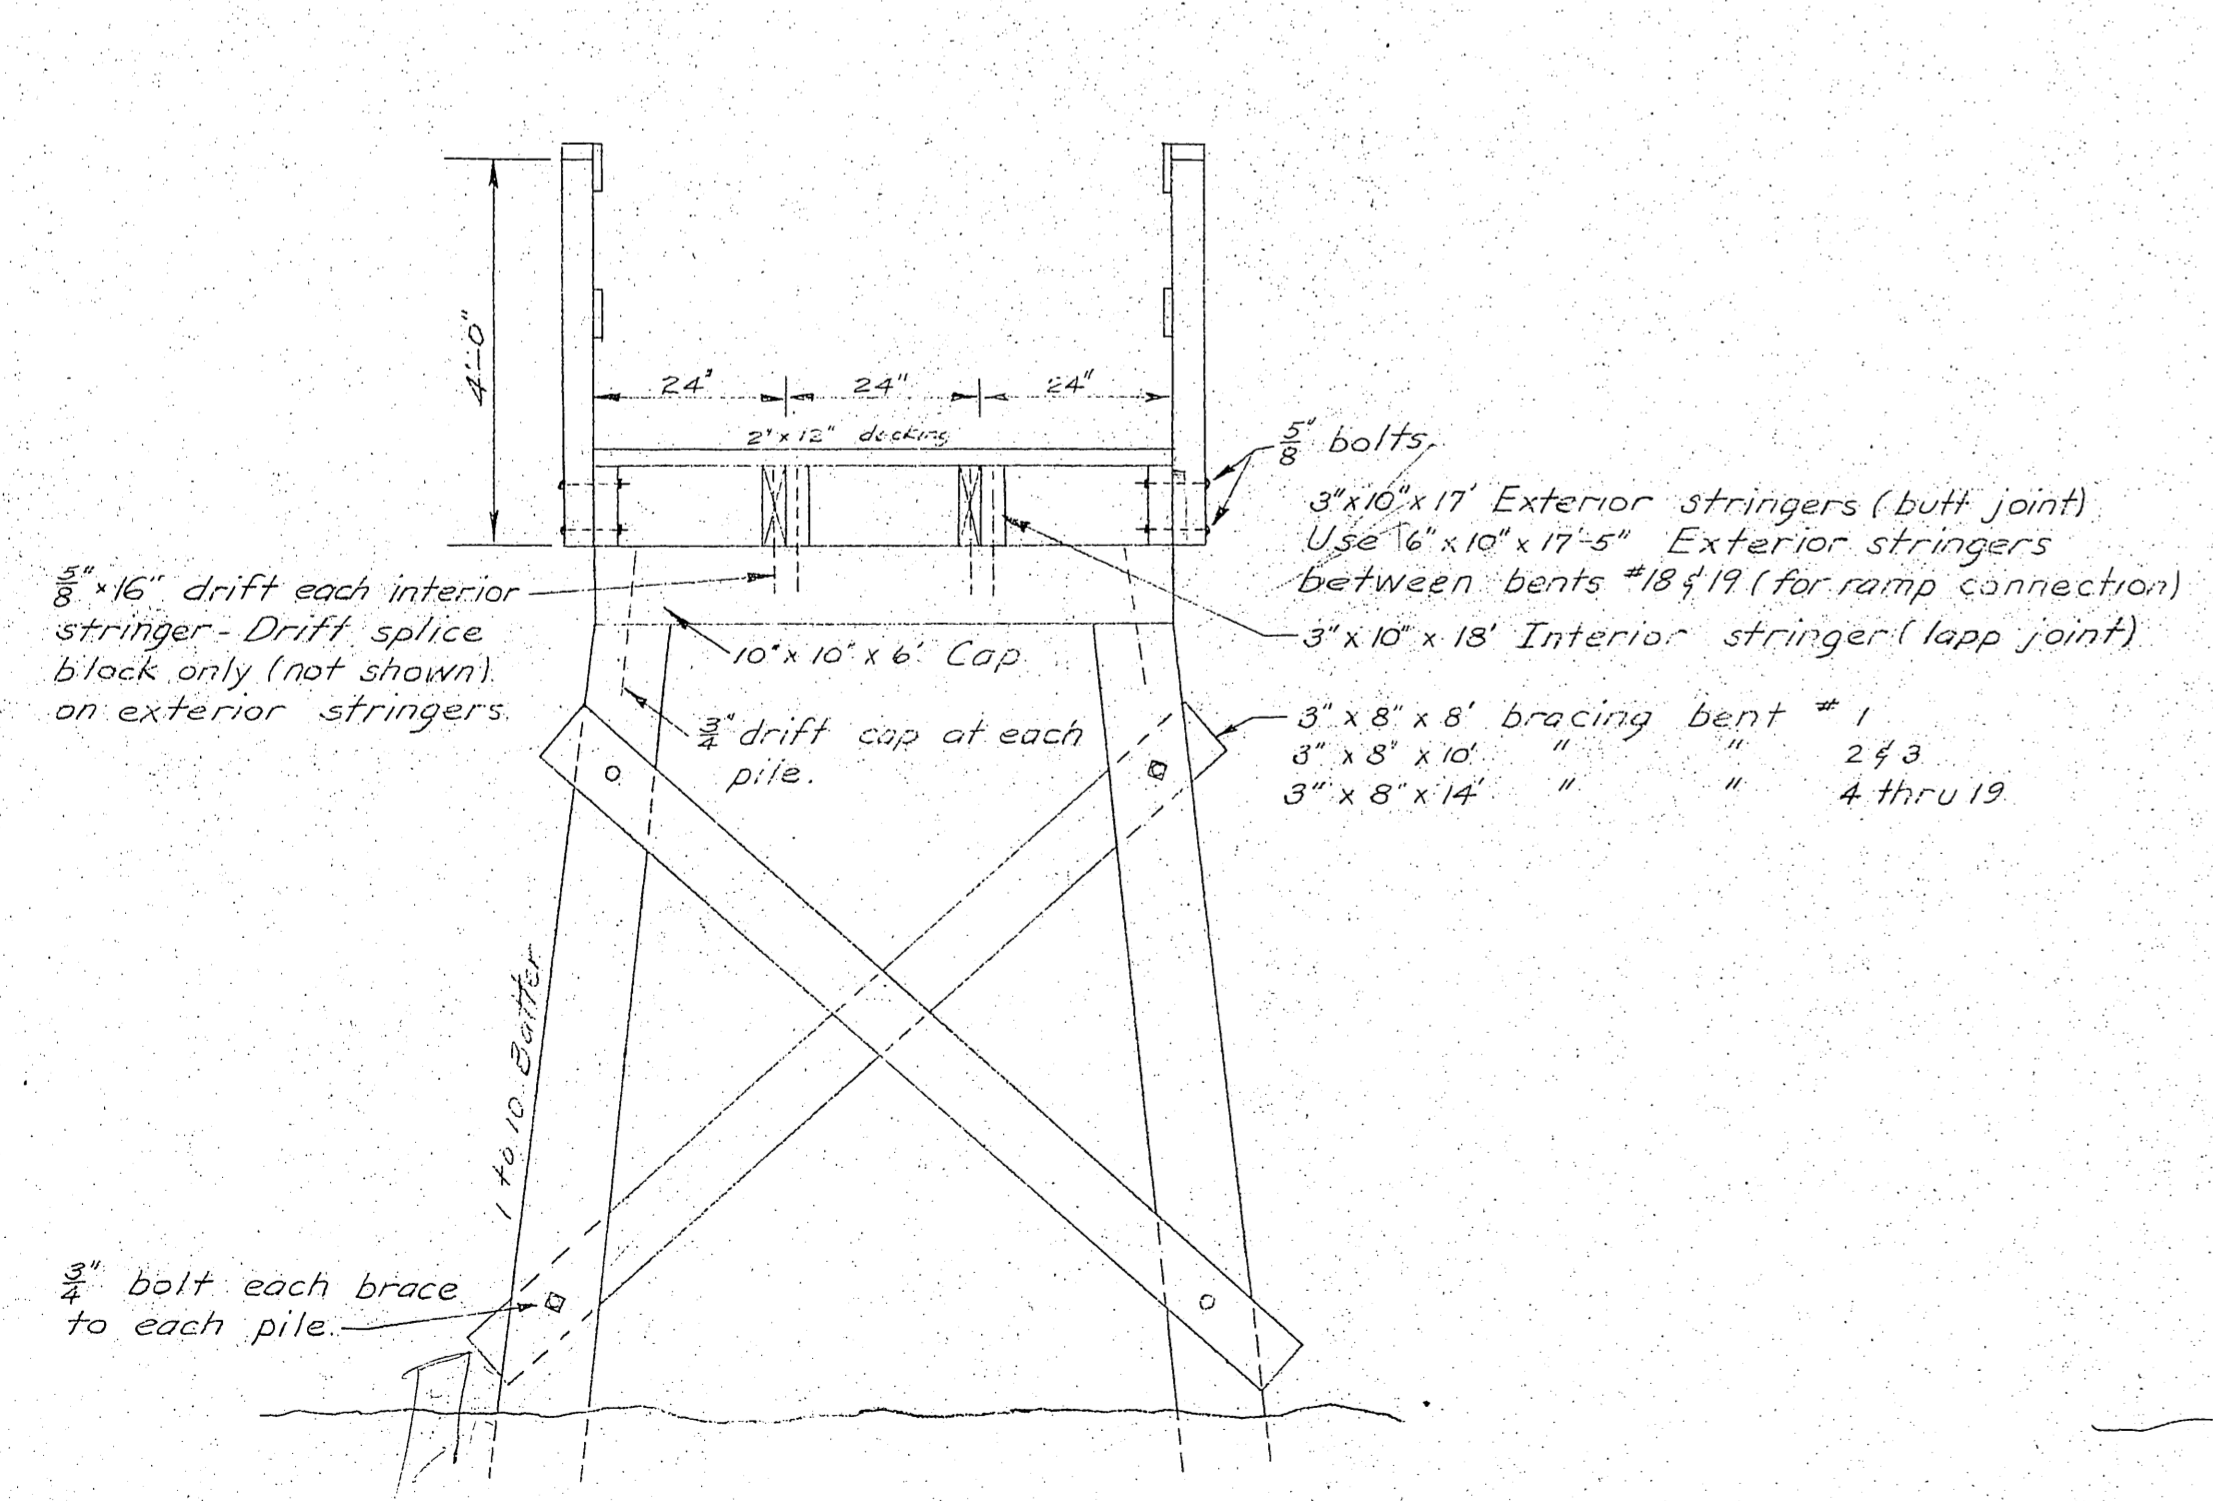 4'-0"
24" 24" 24"
2" x 12" decking
5/8" bolts
3"x10"x17' Exterior stringers (butt joint)
Use 6"x10"x17'-5" Exterior stringers
between bents #18 & 19 (for ramp connection)
3"x10"x18' Interior stringer (lapp joint)
5/8"x16" drift each interior
stringer - Drift splice
block only (not shown)
on exterior stringers.
10"x10"x6' Cap
3/4" drift cap at each
pile.
3" x 8" x 8' bracing bent # 1
3" x 8" x 10' " " 2 & 3
3" x 8" x 14' " " 4 thru 19
1 to 10 Batter
3/4" bolt each brace
to each pile.